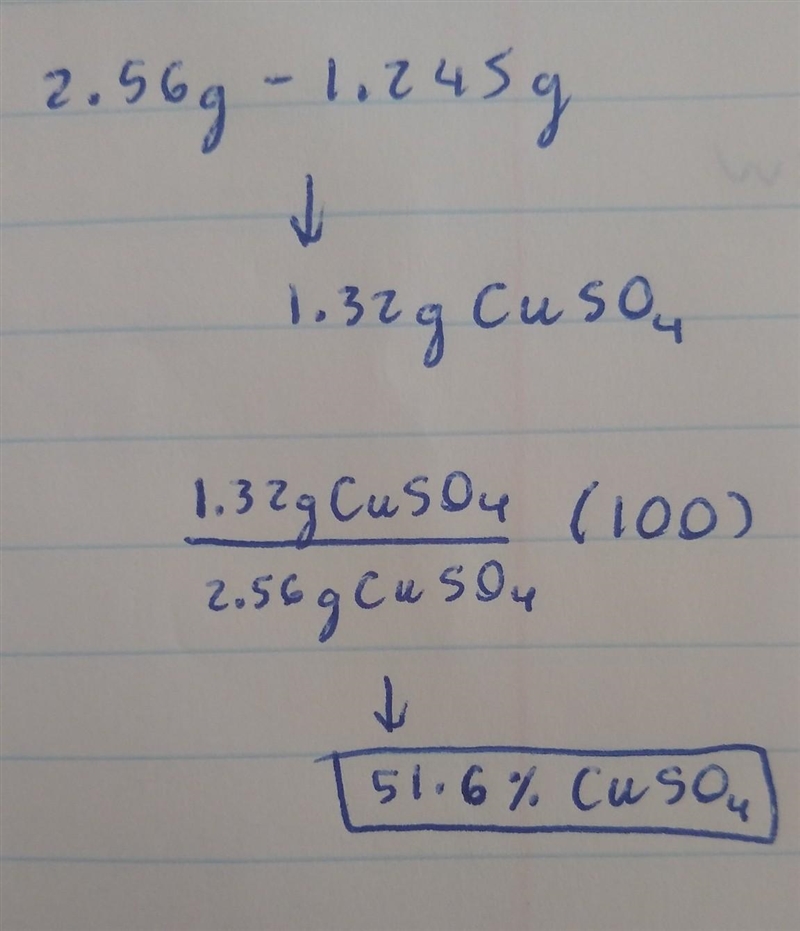 2.56g - 1.245g
↓
1.32g CuSO₄
1.32g CuSO₄ (100)
2.56g CuSO₄
↓
51.6% CuSO₄